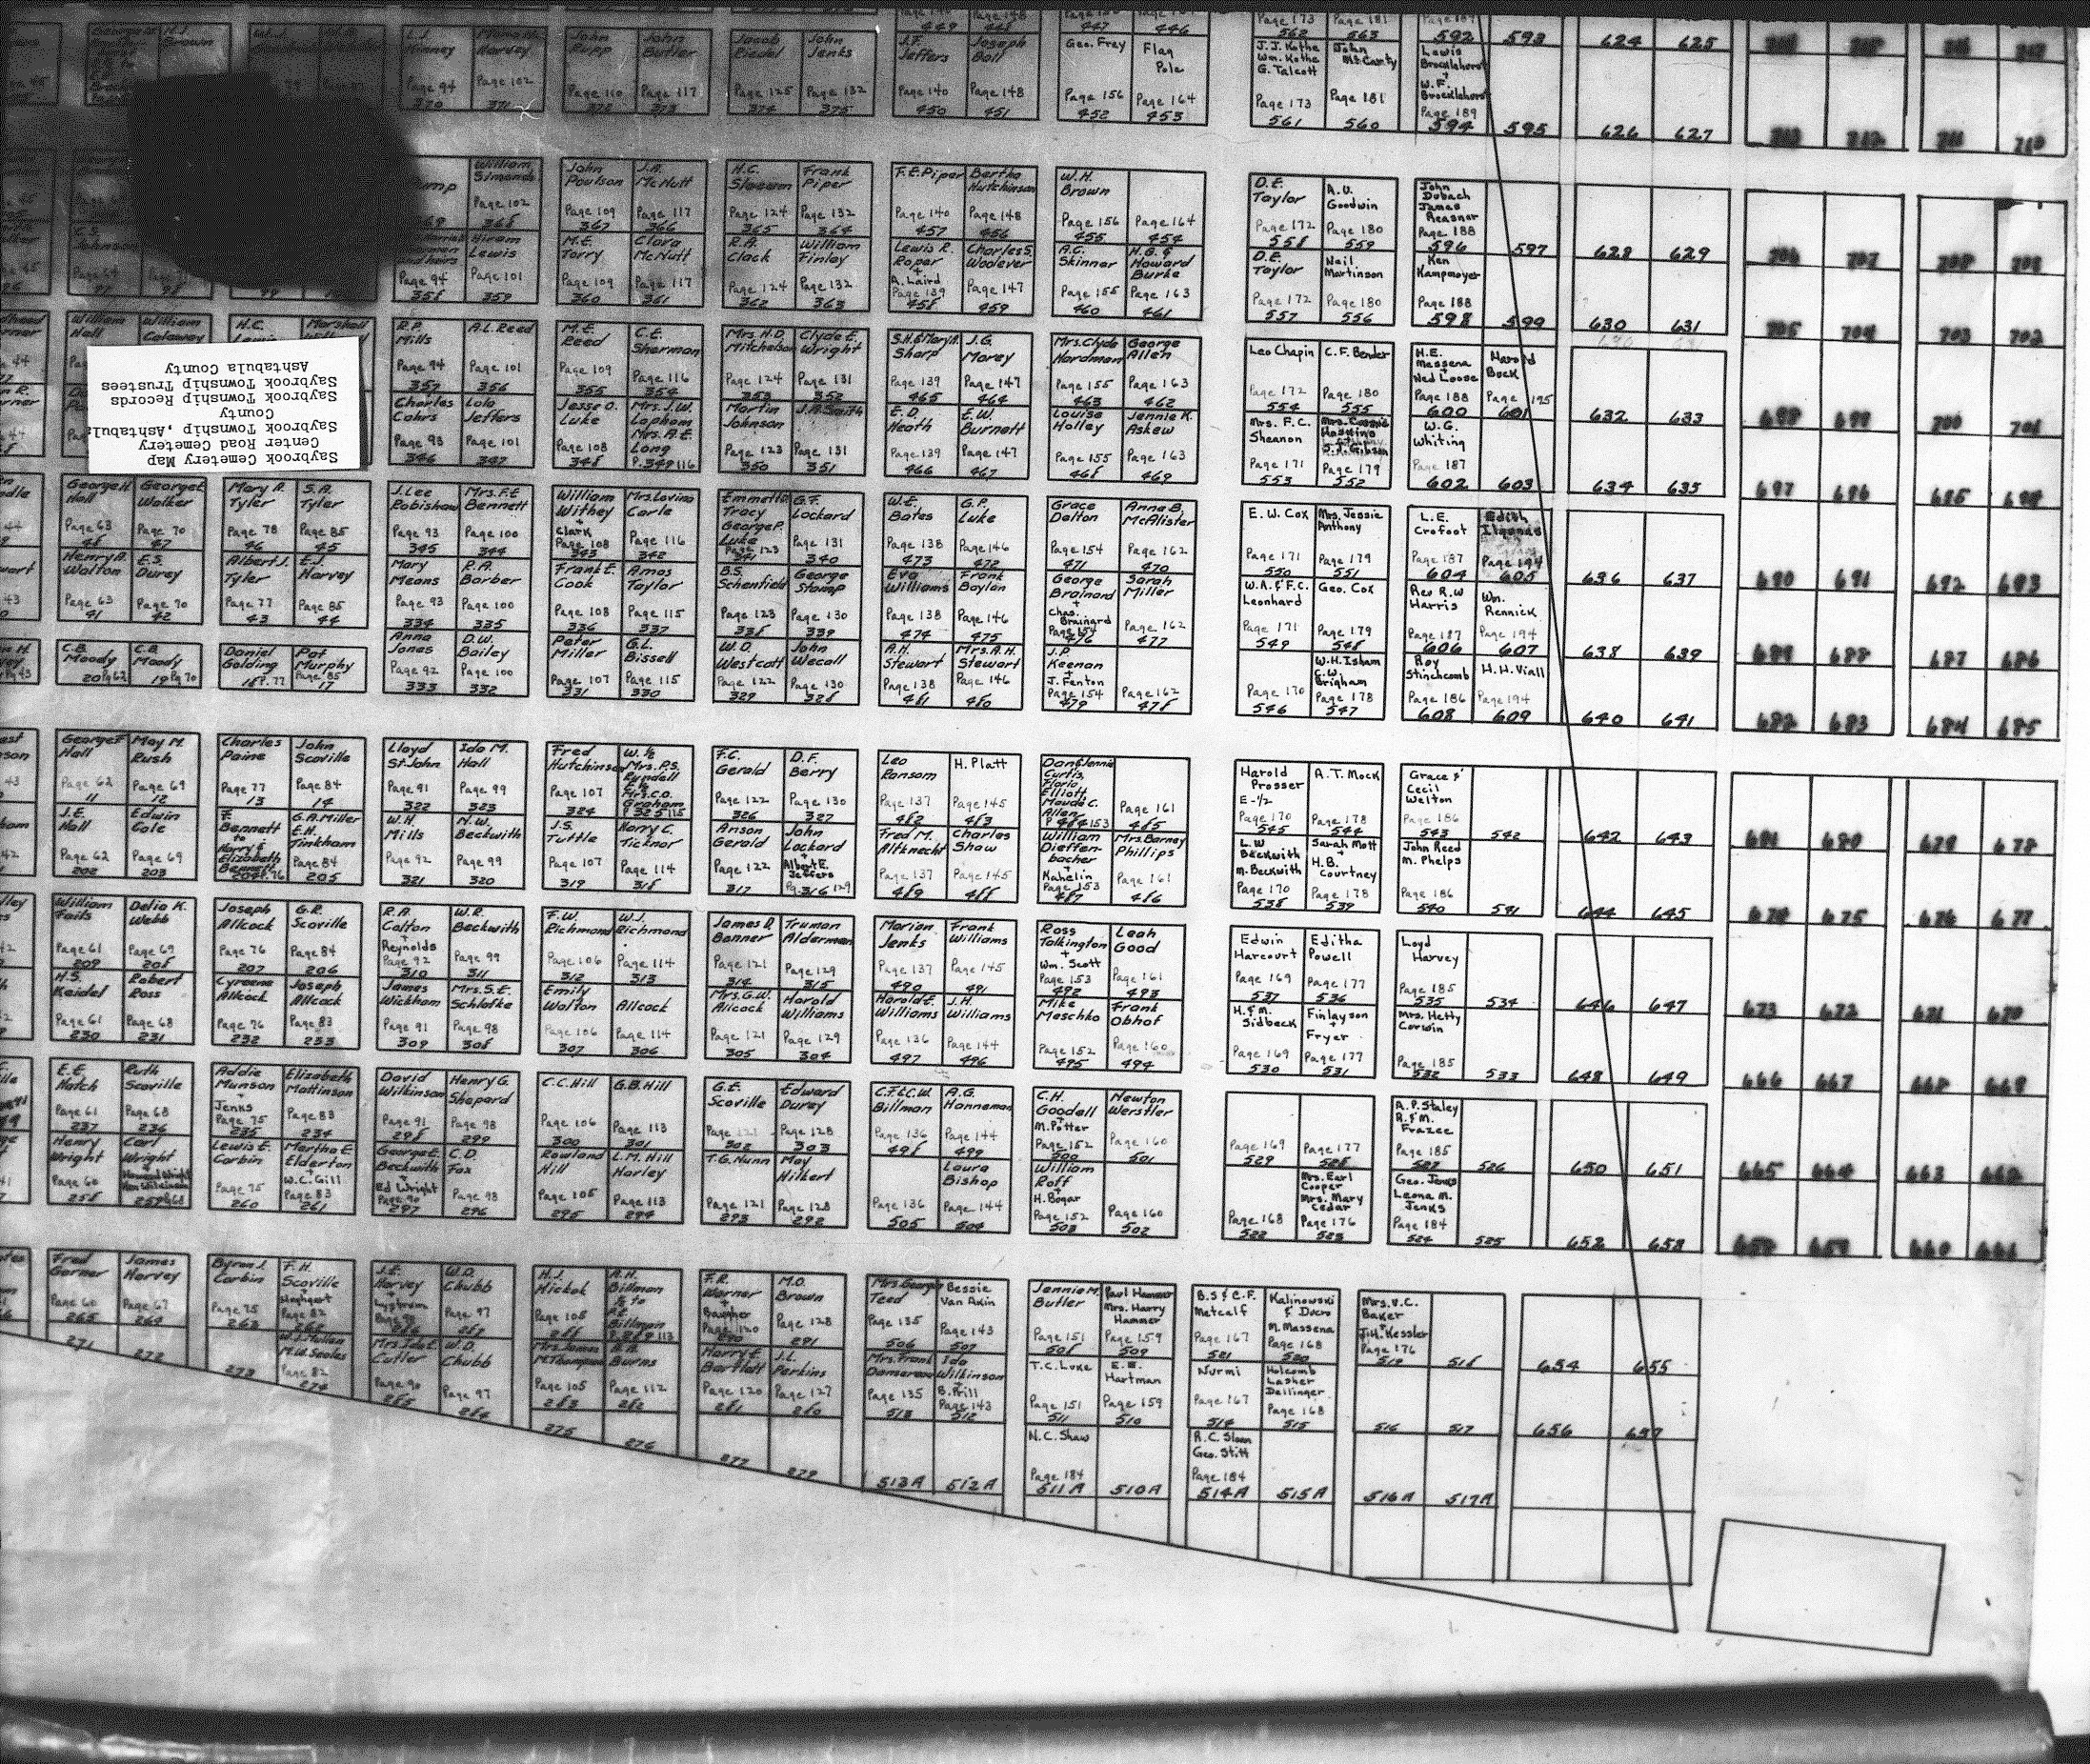 449 448
447 446
Page 173 Page 181
562 563
592 593
624 625
L.J. Kinney
Page 94
370
Harvey
Page 102
371
John Rupp
Page 110
372
John Butler
Page 117
373
Jacob Riedel
Page 125
374
John Jenks
Page 132
375
J.F. Jeffers
Page 140
450
Joseph Ball
Page 148
451
Geo. Frey
Page 156
452
Flag Pole
Page 164
453
J.J. Kothe
Wm. Kothe
G. Talcott
Page 173
561
John McCarty
Page 181
560
Lewis Brocklehurst
+
W.F. Brocklehurst
Page 189
594
595
626 627
William Simonds
Page 102
368
John Poulson
Page 109
367
J.A. McNutt
Page 117
366
H.C. Slocum
Page 124
365
Frank Piper
Page 132
364
F.E. Piper
Page 140
457
Bertha Hutchinson
Page 148
456
W.H. Brown
Page 156
455
Page 164
454
D.E. Taylor
Page 172
558
A.U. Goodwin
Page 180
559
John Dubach
James Reasnor
Page 188
596
597
628 629
706 707 708 709
Hiram Lewis
Page 94
358
Page 101
359
M.E. Torry
Page 109
360
Clara McNutt
Page 117
361
R.A. Clack
Page 124
362
William Finlay
Page 132
363
Lewis R. Roper
+
A. Laird
Page 139
458
Charles S. Wodever
Page 147
459
A.C. Skinner
Page 155
460
H.G. & Howard Burke
Page 163
461
D.E. Taylor
Page 172
557
Neil Martinson
Page 180
556
Ken Kampmeyer
Page 188
598
599
630 631
705 704 703 702
William Hall
William Calaway
H.C.
Marshall
R.P. Mills
Page 94
357
A.L. Reed
Page 101
356
M.E. Reed
Page 109
355
C.E. Sherman
Page 116
354
Mrs. H.D. Mitchelson
Page 124
353
Clyde E. Wright
Page 131
352
S.H. & Mary A. Sharp
Page 139
465
J.G. Morey
Page 147
464
Mrs. Clyde Hardman
Page 155
463
George Allen
Page 163
462
Leo Chapin
Page 172
554
C.F. Bender
Page 180
555
H.E. Massena
+
Ned Loose
Page 188
600
Harold Buck
Page 195
601
632 633
698 699 700 701
Saybrook Cemetery Map
Center Road Cemetery
Saybrook Township, Ashtabula
County
Saybrook Township Records
Saybrook Township Trustees
Ashtabula County
Charles Cohrs
Page 93
346
Lola Jeffers
Page 101
347
Jesse O. Luke
Page 108
348
Mrs. J.W. Lapham
Mrs. A.E. Long
P. 349 116
Martin Johnson
Page 123
350
J.A. Smith
Page 131
351
E.D. Heath
Page 139
466
E.W. Burnett
Page 147
467
Louise Holley
Page 155
468
Jennie K. Askew
Page 163
469
Mrs. F.C. Sheanon
Page 171
553
J.J. Gibson
Page 179
552
W.G. Whiting
Page 187
602
603
634 635
697 696 695 694
George H. Hall
Page 63
48
George E. Walker
Page 70
47
Mary A. Tyler
Page 78
46
S.A. Tyler
Page 85
45
J. Lee Robishaw
Page 93
345
Mrs. F.E. Bennett
Page 100
344
William Withey
+
Clark
Page 108
343
Mrs. Lavina Carle
Page 116
342
Emmett Tracy
George P. Luke
Page 123
341
G.F. Lockard
Page 131
340
W.E. Bates
Page 138
473
G.P. Luke
Page 146
472
Grace Dalton
Page 154
471
Anna B. McAlister
Page 162
470
E.W. Cox
Page 171
550
Mrs. Jessie Anthony
Page 179
551
L.E. Crofoot
Page 187
604
Edith
Page 194
605
636 637
690 691 692 693
Henry A. Walton
Page 63
41
E.S. Durey
Page 70
42
Albert J. Tyler
Page 77
43
E.J. Harvey
Page 85
44
Mary Means
Page 93
334
R.A. Barber
Page 100
335
Frank E. Cook
Page 108
336
Amos Taylor
Page 115
337
B.S. Schenfield
Page 123
338
George Stamp
Page 130
339
Eva Williams
Page 138
474
Frank Boylan
Page 146
475
George Brainard
+
Chas. Brainard
Page 154
476
Sarah Miller
Page 162
477
W.A. & F.C. Leonhard
Page 171
549
Geo. Cox
Page 179
548
Rev R.W Harris
Page 187
606
Wm. Rennick
Page 194
607
638 639
689 688 687 686
C.B. Moody
20 Pg 62
C.B. Moody
19 Pg 70
Daniel Golding
18 P. 77
Pat Murphy
Page 85
17
Anna Jones
Page 92
333
D.W. Bailey
Page 100
332
Peter Miller
Page 107
331
G.L. Bissell
Page 115
330
W.D. Westcott
Page 122
329
John Wecall
Page 130
328
A.H. Stewart
Page 138
481
Mrs. A.H. Stewart
Page 146
480
J.P. Keenan
+
J. Fenton
Page 154
479
Page 162
478
Page 170
546
W.H. Isham
C.W. Brigham
Page 178
547
Roy Stinchcomb
Page 186
608
H.H. Viall
Page 194
609
640 641
682 683 684 685
George F. Hall
Page 62
11
May M. Rush
Page 69
12
Charles Paine
Page 77
13
John Scoville
Page 84
14
Lloyd St. John
Page 91
322
Ida M. Hall
Page 99
323
Fred Hutchinson
Page 107
324
W. ½
Mrs. P.S. Rundell
E. ½
Mrs. C.O. Graham
P. 325 115
F.C. Gerald
Page 122
326
D.F. Berry
Page 130
327
Leo Ransom
Page 137
482
H. Platt
Page 145
483
Dan & Jennie Curtis,
Floria Elliott
Maude C. Allen
P. 484 153
Page 161
485
Harold Prosser
E-½
Page 170
545
A.T. Mock
Page 178
544
Grace & Cecil Welton
Page 186
543
542
642 643
681 680 679 678
J.E. Hall
Page 62
202
Edwin Cole
Page 69
203
F. Bennett
to
Harry & Elizabeth Bennett
204 P. 76
G.A. Miller
E.H. Tinkham
Page 84
205
W.H. Mills
Page 92
321
N.W. Beckwith
Page 99
320
J.S. Tuttle
Page 107
319
Harry C. Ticknor
Page 114
318
Anson Gerald
Page 122
317
John Lockard
+
Albert E. Jeffers
Pg. 316 129
Fred M. Altknecht
Page 137
489
Charles Shaw
Page 145
488
William Dieffenbacher
+
Kahelin
Page 153
487
Mrs. Barney Phillips
Page 161
486
L.W Beckwith
M. Beckwith
Page 170
538
Sarah Mott
+
H.B. Courtney
Page 178
539
John Reed
M. Phelps
Page 186
540
541
644 645
674 675 676 677
William Fails
Page 61
209
Delia K. Webb
Page 69
208
Joseph Allcock
Page 76
207
G.R. Scoville
Page 84
206
R.A. Colton
+
Reynolds
Page 92
310
W.R. Beckwith
Page 99
311
F.W. Richmond
Page 106
312
W.J. Richmond
Page 114
313
James D. Bonner
Page 121
314
Truman Alderman
Page 129
315
Marion Jenks
Page 137
490
Frank Williams
Page 145
491
Ross Talkington
+
Wm. Scott
Page 153
492
Leah Good
Page 161
493
Edwin Harcourt
Page 169
537
Editha Powell
Page 177
536
Loyd Harvey
Page 185
535
534
646 647
673 672 671 670
H.S. Keidel
Page 61
230
Robert Ross
Page 68
231
Cyreene Allcock
Page 76
232
Joseph Allcock
Page 83
233
James Wickham
Page 91
309
Mrs. S.E. Schlafke
Page 98
308
Emily Walton
Page 106
307
Allcock
Page 114
306
Mrs. G.W. Allcock
Page 121
305
Harold Williams
Page 129
304
Harold E. Williams
Page 136
497
J.H. Williams
Page 144
496
Mike Meschko
Page 152
495
Frank Obhof
Page 160
494
H. & M. Sidbeck
Page 169
530
Finlayson
+
Fryer
Page 177
531
Mrs. Hetty Corwin
Page 185
532
533
648 649
666 667 668 669
E.E. Hatch
Page 61
237
Ruth Scoville
Page 68
236
Addie Munson
+
Jenks
Page 75
235
Elizabeth Mattinson
Page 83
234
David Wilkinson
Page 91
298
Henry G. Shepard
Page 98
299
C.C. Hill
Page 106
300
G.B. Hill
Page 113
301
G.E. Scoville
Page 121
302
Edward Durey
Page 128
303
C.F. & C.W. Billman
Page 136
498
A.G. Hanneman
Page 144
499
C.H. Goodell
+
M. Potter
Page 152
500
Newton Werstler
Page 160
501
Page 169
529
Page 177
528
A.P. Staley
R. & M. Frazee
Page 185
527
526
650 651
665 664 663 662
Henry Wright
Page 60
258
Carl Wright
+
Howard Wright
259 Pg 68
Lewis E. Corbin
Page 75
260
Martha E. Elderton
+
W.C. Gill
Page 83
261
George E. Beckwith
+
Ed Wright
Page 90
297
C.D. Fox
Page 98
296
Rowland Hill
Page 105
295
L.M. Hill
Harley
Page 113
294
T.G. Nunn
Page 121
293
May Hilbert
Page 128
292
Page 136
505
Laura Bishop
Page 144
504
William Roff
+
H. Bogar
Page 152
503
Page 160
502
Page 168
522
Mrs. Earl Cooper
Mrs. Mary Cedar
Page 176
523
Geo. Jenks
Leona M. Jenks
Page 184
524
525
652 653
658 659 660 661
Fred Garner
Page 60
265
James Harvey
Page 67
264
Byron J. Corbin
Page 75
263
F.H. Scoville
Page 82
262
J.E. Harvey
+
286
W.D. Chubb
Page 97
287
H.J. Hickok
Page 105
288
A.H. Billman
½ to
Billman
P. 289 113
F.R. Warner
+
Baugher
Page 120
290
M.O. Brown
Page 128
291
Mrs. Georgia Teed
Page 135
506
Bessie Van Akin
Page 143
507
Jennie M. Butler
Page 151
508
Paul Hammer
Mrs. Harry Hammer
Page 159
509
B.S & C.F. Metcalf
Page 167
521
Kalinowski & Ducro
M. Massena
Page 168
520
Mrs. V.C. Baker
+
J.H. Kessler
Page 176
519
518
654 655
271 272 273
W.J. Mullen
M.W. Searles
Page 82
274
Mrs. Ida E. Cutler
Page 90
285
W.D. Chubb
Page 97
284
Mrs. James M. Thompson
Page 105
283
Burns
Page 112
282
Harry E. Bartlett
Page 120
281
J.L. Perkins
Page 127
280
Mrs. Frank Damereau
Page 135
513
Ida Wilkinson
+
B. Prill
Page 143
512
T.C. Luke
Page 151
511
E.E. Hartman
Page 159
510
Nurmi
Page 167
514
Holcomb
Lasher
Dellinger
Page 168
515
516 517
656 657
275 276
277 279
513A 512A
N.C. Shaw
Page 184
511A
510A
R.C. Sloan
Geo. Stitt
Page 184
514A
515A
516A 517A